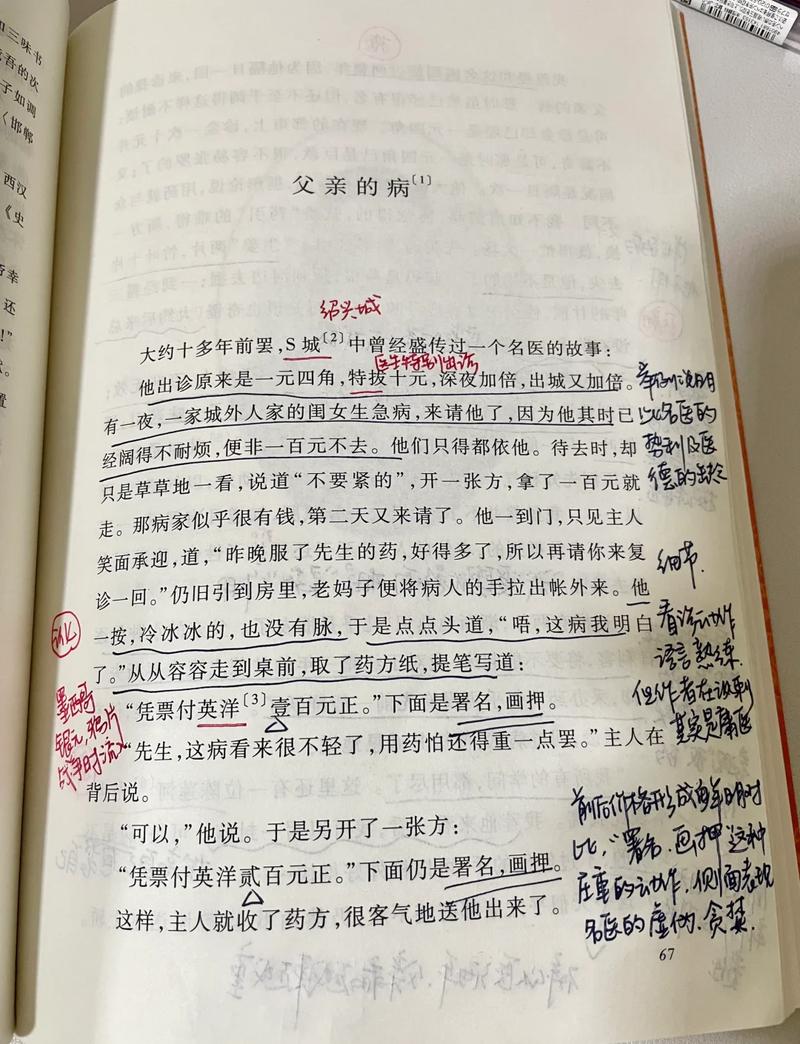 如三味书
子如调
《邯郸
西汉
《史
还
置
父亲的病[1]
绍兴城
大约十多年前罢，S城[2]中曾经盛传过一个名医的故事：
医生特别出诊
他出诊原来是一元四角，特拔十元，深夜加倍，出城又加倍。
有一夜，一家城外人家的闺女生急病，来请他了，因为他其时已
经阔得不耐烦，便非一百元不去。他们只得都依他。待去时，却
只是草草地一看，说道“不要紧的”，开一张方，拿了一百元就
走。那病家似乎很有钱，第二天又来请了。他一到门，只见主人
笑面承迎，道，“昨晚服了先生的药，好得多了，所以再请你来复
诊一回。”仍旧引到房里，老妈子便将病人的手拉出帐外来。他
一按，冷冰冰的，也没有脉，于是点点头道，“唔，这病我明白
了。”从从容容走到桌前，取了药方纸，提笔写道：
“凭票付英洋[3]壹百元正。”下面是署名，画押。
“先生，这病看来很不轻了，用药怕还得重一点罢。”主人在
背后说。
“可以，”他说。于是另开了一张方：
“凭票付英洋贰百元正。”下面仍是署名，画押。
这样，主人就收了药方，很客气地送他出来了。
67
墨西哥
银元，鸦片
战争时流入
说明
此名医的
势利及医
德的缺
细节
看诊动作
语言熟练
但作者在讽刺
其实是庸医
前后价格形成鲜明对
比，“署名，画押”这种
庄重的动作，侧面表现
名医的虚伪、贪婪